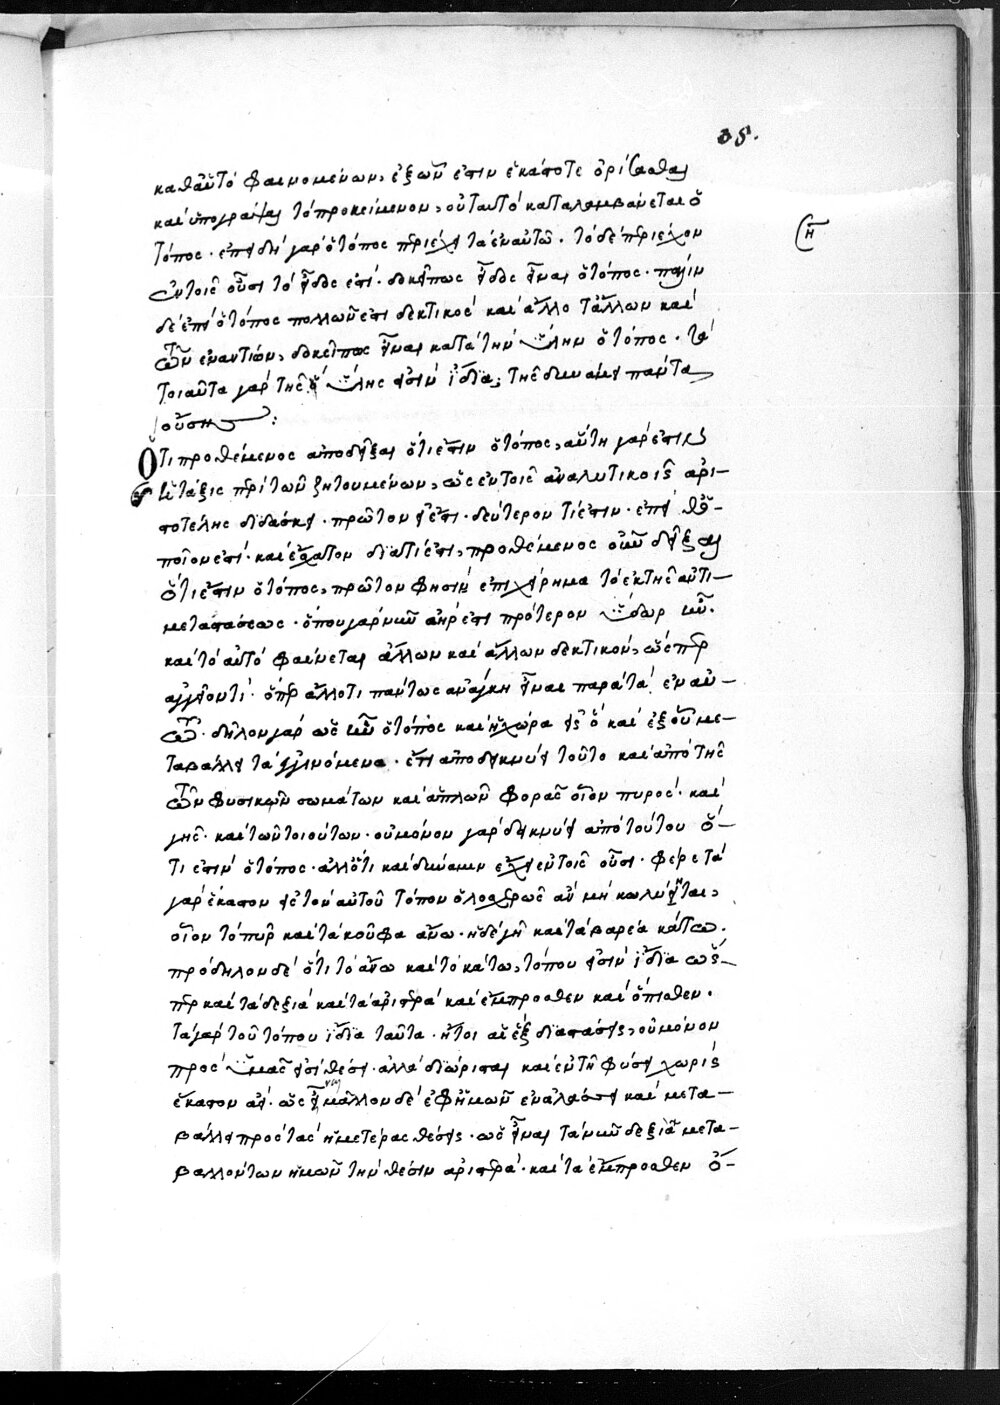 35.
καθαὑτὸ φαινομένων, ἐξ ὧν ἐστὶν ἑκάστοτε ὁρίζεσθαι
καὶ ὑπογράψαι τὸ προκείμενον, οὐ ταυτὸ καταλαμβάνεται ὁ
τόπος · ἐπειδὴ γὰρ ὁ τόπος περιέχει τὰ ἐν αὐτῶ · τὸ δὲ περιέχον
ἐν τοῖς οὖσι τὸ εἶδος ἐστί · δοκεῖ πως εἶδος εἶναι ὁ τόπος · πάλιν
δὲ ἐπεὶ ὁ τόπος πολλῶν ἐστι δεκτικὸς καὶ ἄλλοτ' ἄλλων καὶ
τῶν ἐναντίων, δοκεῖ πως εἶναι κατὰ τὴν ὕλην ὁ τόπος · τὰ
τοιαῦτα γὰρ τῆς ὕλης εἰσὶν ἴδια, τῆς δυνάμει πάντα
οὔσης:
Ὅτι προθέμενος ἀποδεῖξαι ὅτι ἐστὶν ὁ τόπος, αὕτη γάρ ἐστιν
ἡ τάξις περὶ τῶν ζητουμένων, ὡς ἐν τοῖς ἀναλυτικοῖς ἀρι-
στοτέλης διδάσκει · πρῶτον εἰ ἔστι · δεύτερον τί ἐστιν · ἐπὶ
ποῖόν ἐστι · καὶ ἔσχατον διατί ἐστι, προθέμενος οὖν δεῖξαι
ὅτι ἐστὶν ὁ τόπος, πρῶτον φησὶν ἐπιχείρημα τὸ ἐκ τῆς ἀντι-
μεταστάσεως · ὅπου γὰρ νῦν ἀήρ ἐστι πρότερον ὕδωρ ἦν ·
καὶ τὸ αὐτὸ φαίνεται ἄλλων καὶ ἄλλων δεκτικόν, ὥσπερ
ἀγγεῖόν τι · ὅπερ ἄλλό τι πάντως ἀνάγκη εἶναι παρὰ τὰ ἐν αὐ-
τῶ · δῆλον γὰρ ὡς ἦν ὁ τόπος καὶ ἡ χώρα εἰς ὃ καὶ ἐξ οὗ με-
ταβάλλει τὰ γινόμενα · ἔτι ἀποδείκνυσι τοῦτο καὶ ἀπὸ τῆς
τῶν φυσικῶν σωμάτων καὶ ἁπλῶν φορᾶς οἷον πυρὸς · καὶ
γῆς · καὶ τῶν τοιούτων · οὐ μόνον γὰρ δείκνυσι ἀπὸ τούτου ὅ-
τι ἐστὶν ὁ τόπος · ἀλλ' ὅτι καὶ δύναμιν ἔχει ἐν τοῖς οὖσι · φέρεται
γὰρ ἕκαστον εἰς τὸν αὑτοῦ τόπον ὁλοσχερῶς ἂν μὴ κωλύηται,
οἷον τὸ πῦρ καὶ τὰ κοῦφα ἄνω · ἡ δὲ γῆ καὶ τὰ βαρέα κάτω ·
πρόδηλον δὲ ὅτι τὸ ἄνω καὶ τὸ κάτω, τόπου εἰσὶν ἴδια ὥσ-
περ καὶ τὰ δεξιὰ καὶ τὰ ἀριστερὰ καὶ ἔμπροσθεν καὶ ὄπισθεν ·
τὰ γὰρ τοῦ τόπου ἴδια ταῦτα · ἤτοι αἱ ἓξ διαστάσεις, οὐ μόνον
πρὸς ἡμᾶς εἰσὶ θέσει · ἀλλὰ διώρισται καὶ ἐν τῆ φύσει χωρὶς
ἕκαστον ἀεί · ὡς εἶναι μᾶλλον δὲ ἐφ' ἡμῶν ἐναλάσσει καὶ μετα-
βάλλει πρὸς τὰς ἡμετέρας θέσεις · ὡς εἶναι τὰ νῦν δεξιὰ μετα-
βαλλόντων ἡμῶν τὴν θέσιν ἀριστερά · καὶ τὰ ἔμπροσθεν ὄ-